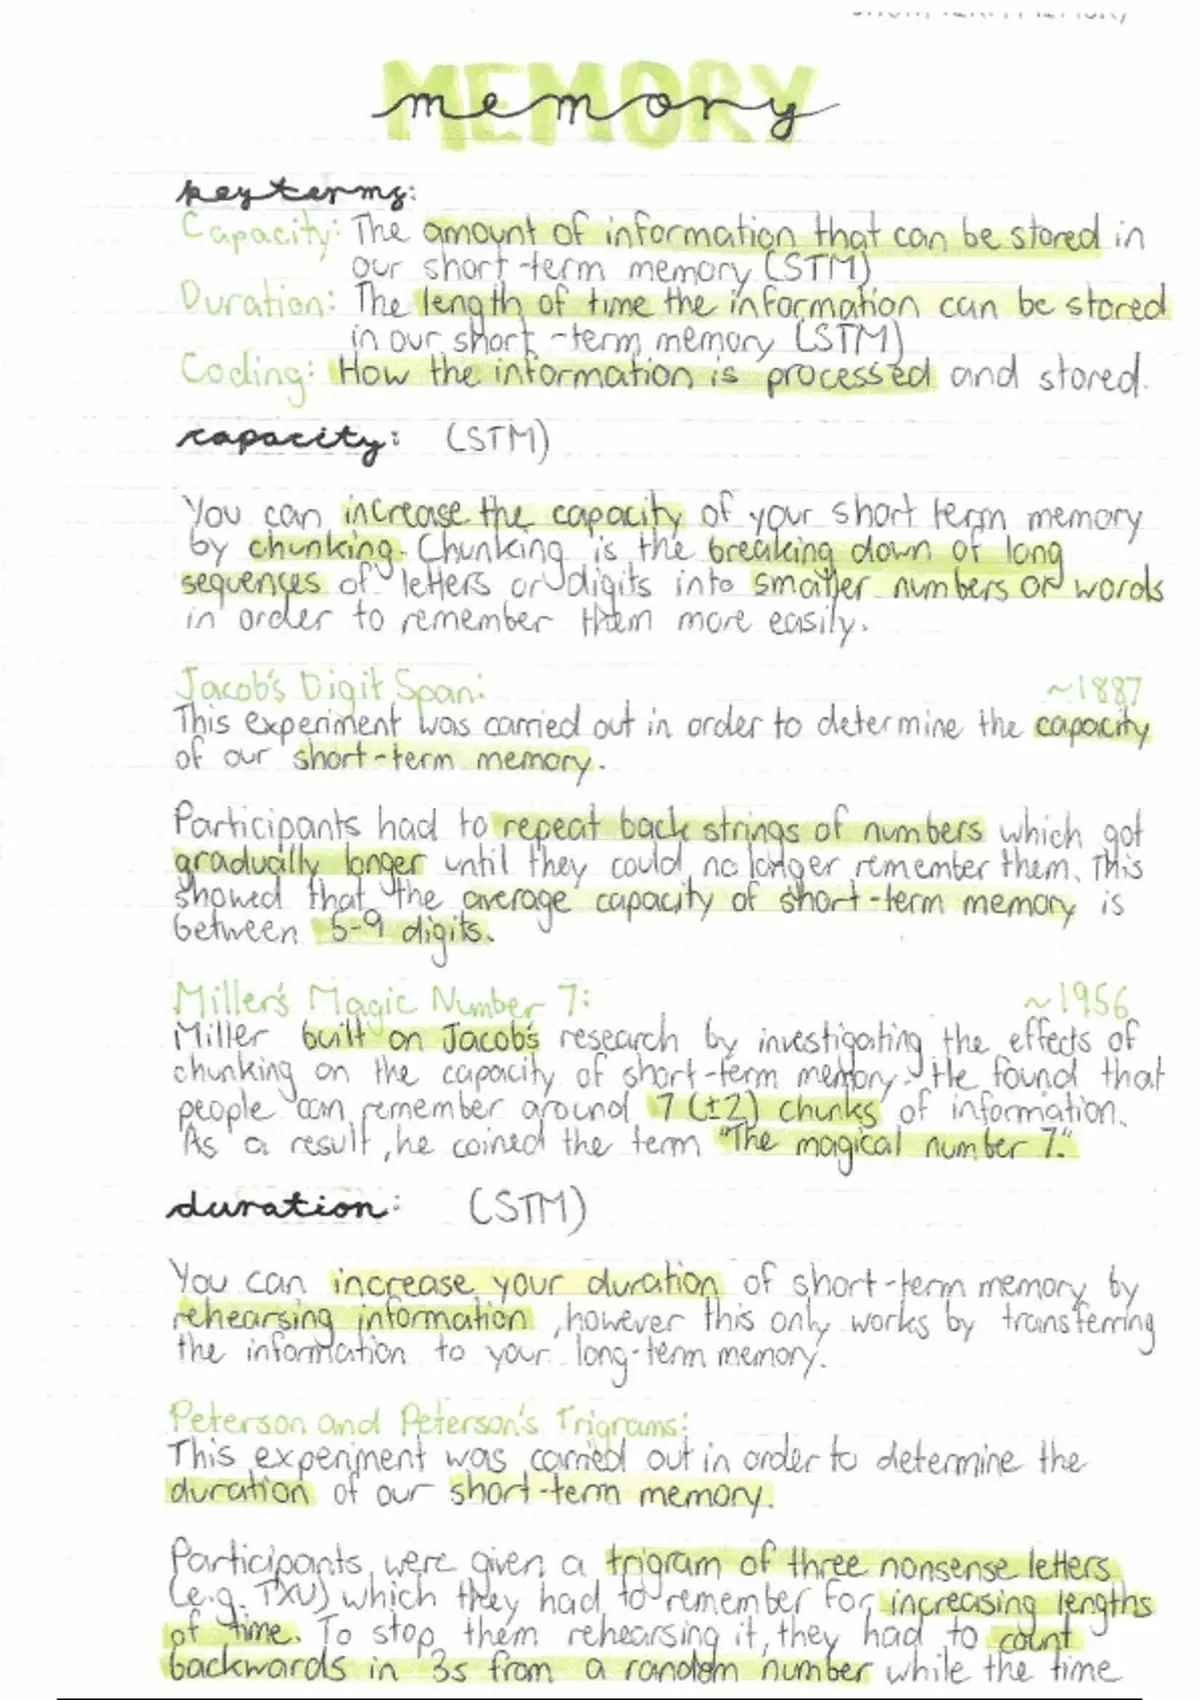 MEMORY
memory
key terms:
Capacity: The amount of information that can be stored in
our short-term memory (STM)
Duration: The length of time the information can be stored
in our short-term memory (STM)
Coding: How the information is processed and stored.
capacity: (STM)
You can increase the capacity of your short term memory
by chunking. Chunking is the breaking down of long
sequences of letters or digits into smaller numbers or words
in order to remember them more easily.
Jacob's Digit Span: ~1887
This experiment was carried out in order to determine the capacity
of our short-term memory.
Participants had to repeat back strings of numbers which got
gradually longer until they could no longer remember them. This
showed that the average capacity of short-term memory is
between 5-9 digits.
Miller's Magic Number 7: ~1956
Miller built on Jacob's research by investigating the effects of
chunking on the capacity of short-term memory. He found that
people can remember around 7 (±2) chunks of information.
As a result, he coined the term "The magical number 7."
duration: (STM)
You can increase your duration of short-term memory by
rehearsing information, however this only works by transferring
the information to your long-term memory.
Peterson and Peterson's Trigrams:
This experiment was carried out in order to determine the
duration of our short-term memory.
Participants were given a trigram of three nonsense letters
(e.g. TXU) which they had to remember for increasing lengths
of time. To stop them rehearsing it, they had to count
backwards in 3s from a random number while the time